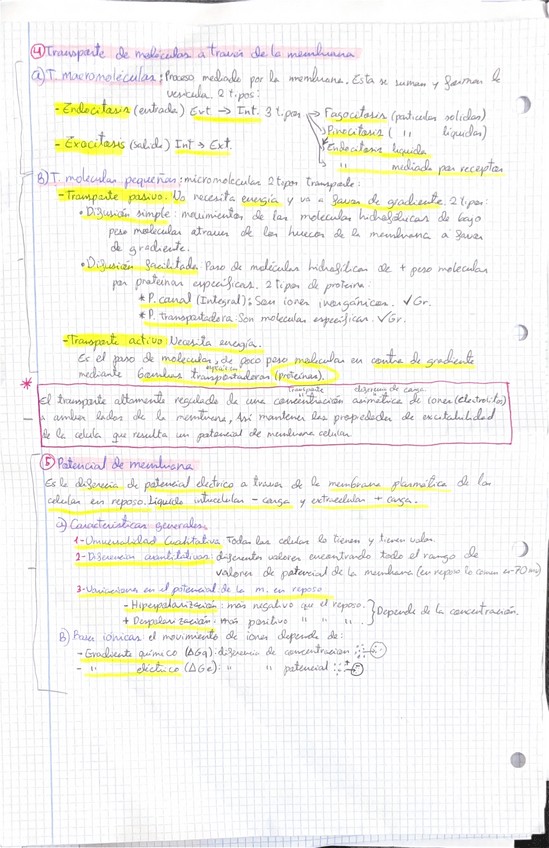 ④ Transporte de moléculas a través de la membrana
a) T. macromoléculas: Proceso mediado por la membrana. Esta se suman y forman la
vesícula. 2 tipos:
- Endocitosis (entrada) Ext → Int. 3 tipos → Fagocitosis (particulas solidas)
Pinocitosis ( " liquidas)
- Exocitosis (salida) Int → Ext. Endocitosis liquida
" mediada por receptor
B) T. moleculas pequeñas: micromoleculas 2 tipos transporte:
- Transporte pasivo. No necesita energía y va a favor de gradiente. 2 tipos:
• Difusión simple: movimientos de las moleculas hidrofóbicas de bajo
peso molecular atraves de los huecos de la membrana a favor
de gradiente.
• Difusión facilitada: Paso de moléculas hidrofílicas de + peso molecular
por proteinas específicas. 2 tipos de proteina:
* P. canal (Integral): Son iones inorgánicos. √Gr.
* P. transportadora: Son moleculas especificas. √Gr.
- Transporte activo: Necesita energía.
Es el paso de moleculas, de poco peso molecular en contra de gradiente
mediante bombas transportadoras (proteinas).
* transporte diferencia de carga
El transporte altamente regulado de una concentración asimetrica de iones (electrolitos)
a ambos lados de la membrana, así mantener las propiedades de excitabilidad
de la celula que resulta un potencial de membrana celular.
⑤ Potencial de membrana
Es la diferencia de potencial electrico a traves de la membrana plasmática de las
celulas en reposo. Liquido intracelular - carga y extracelular + carga.
a) Características generales
1- Universalidad Cualitativa. Todas las celulas lo tienen y tienen valor.
2- Diferencia cuantitativa: diferentes valores encontrando todo el rango de
valores de potencial de la membrana (en reposo lo comun en -70 mv)
3- Variaciones en el potencial de la m. en reposo
- Hiperpolarización: más negativo que el reposo. } Depende de la concentración.
+ Despolarización: más positivo " " " .
B) Bases iónicas el movimiento de iones depende de:
- Gradiente químico (ΔGq): diferencia de concentracion
- " eléctrico (ΔGe): " " potencial